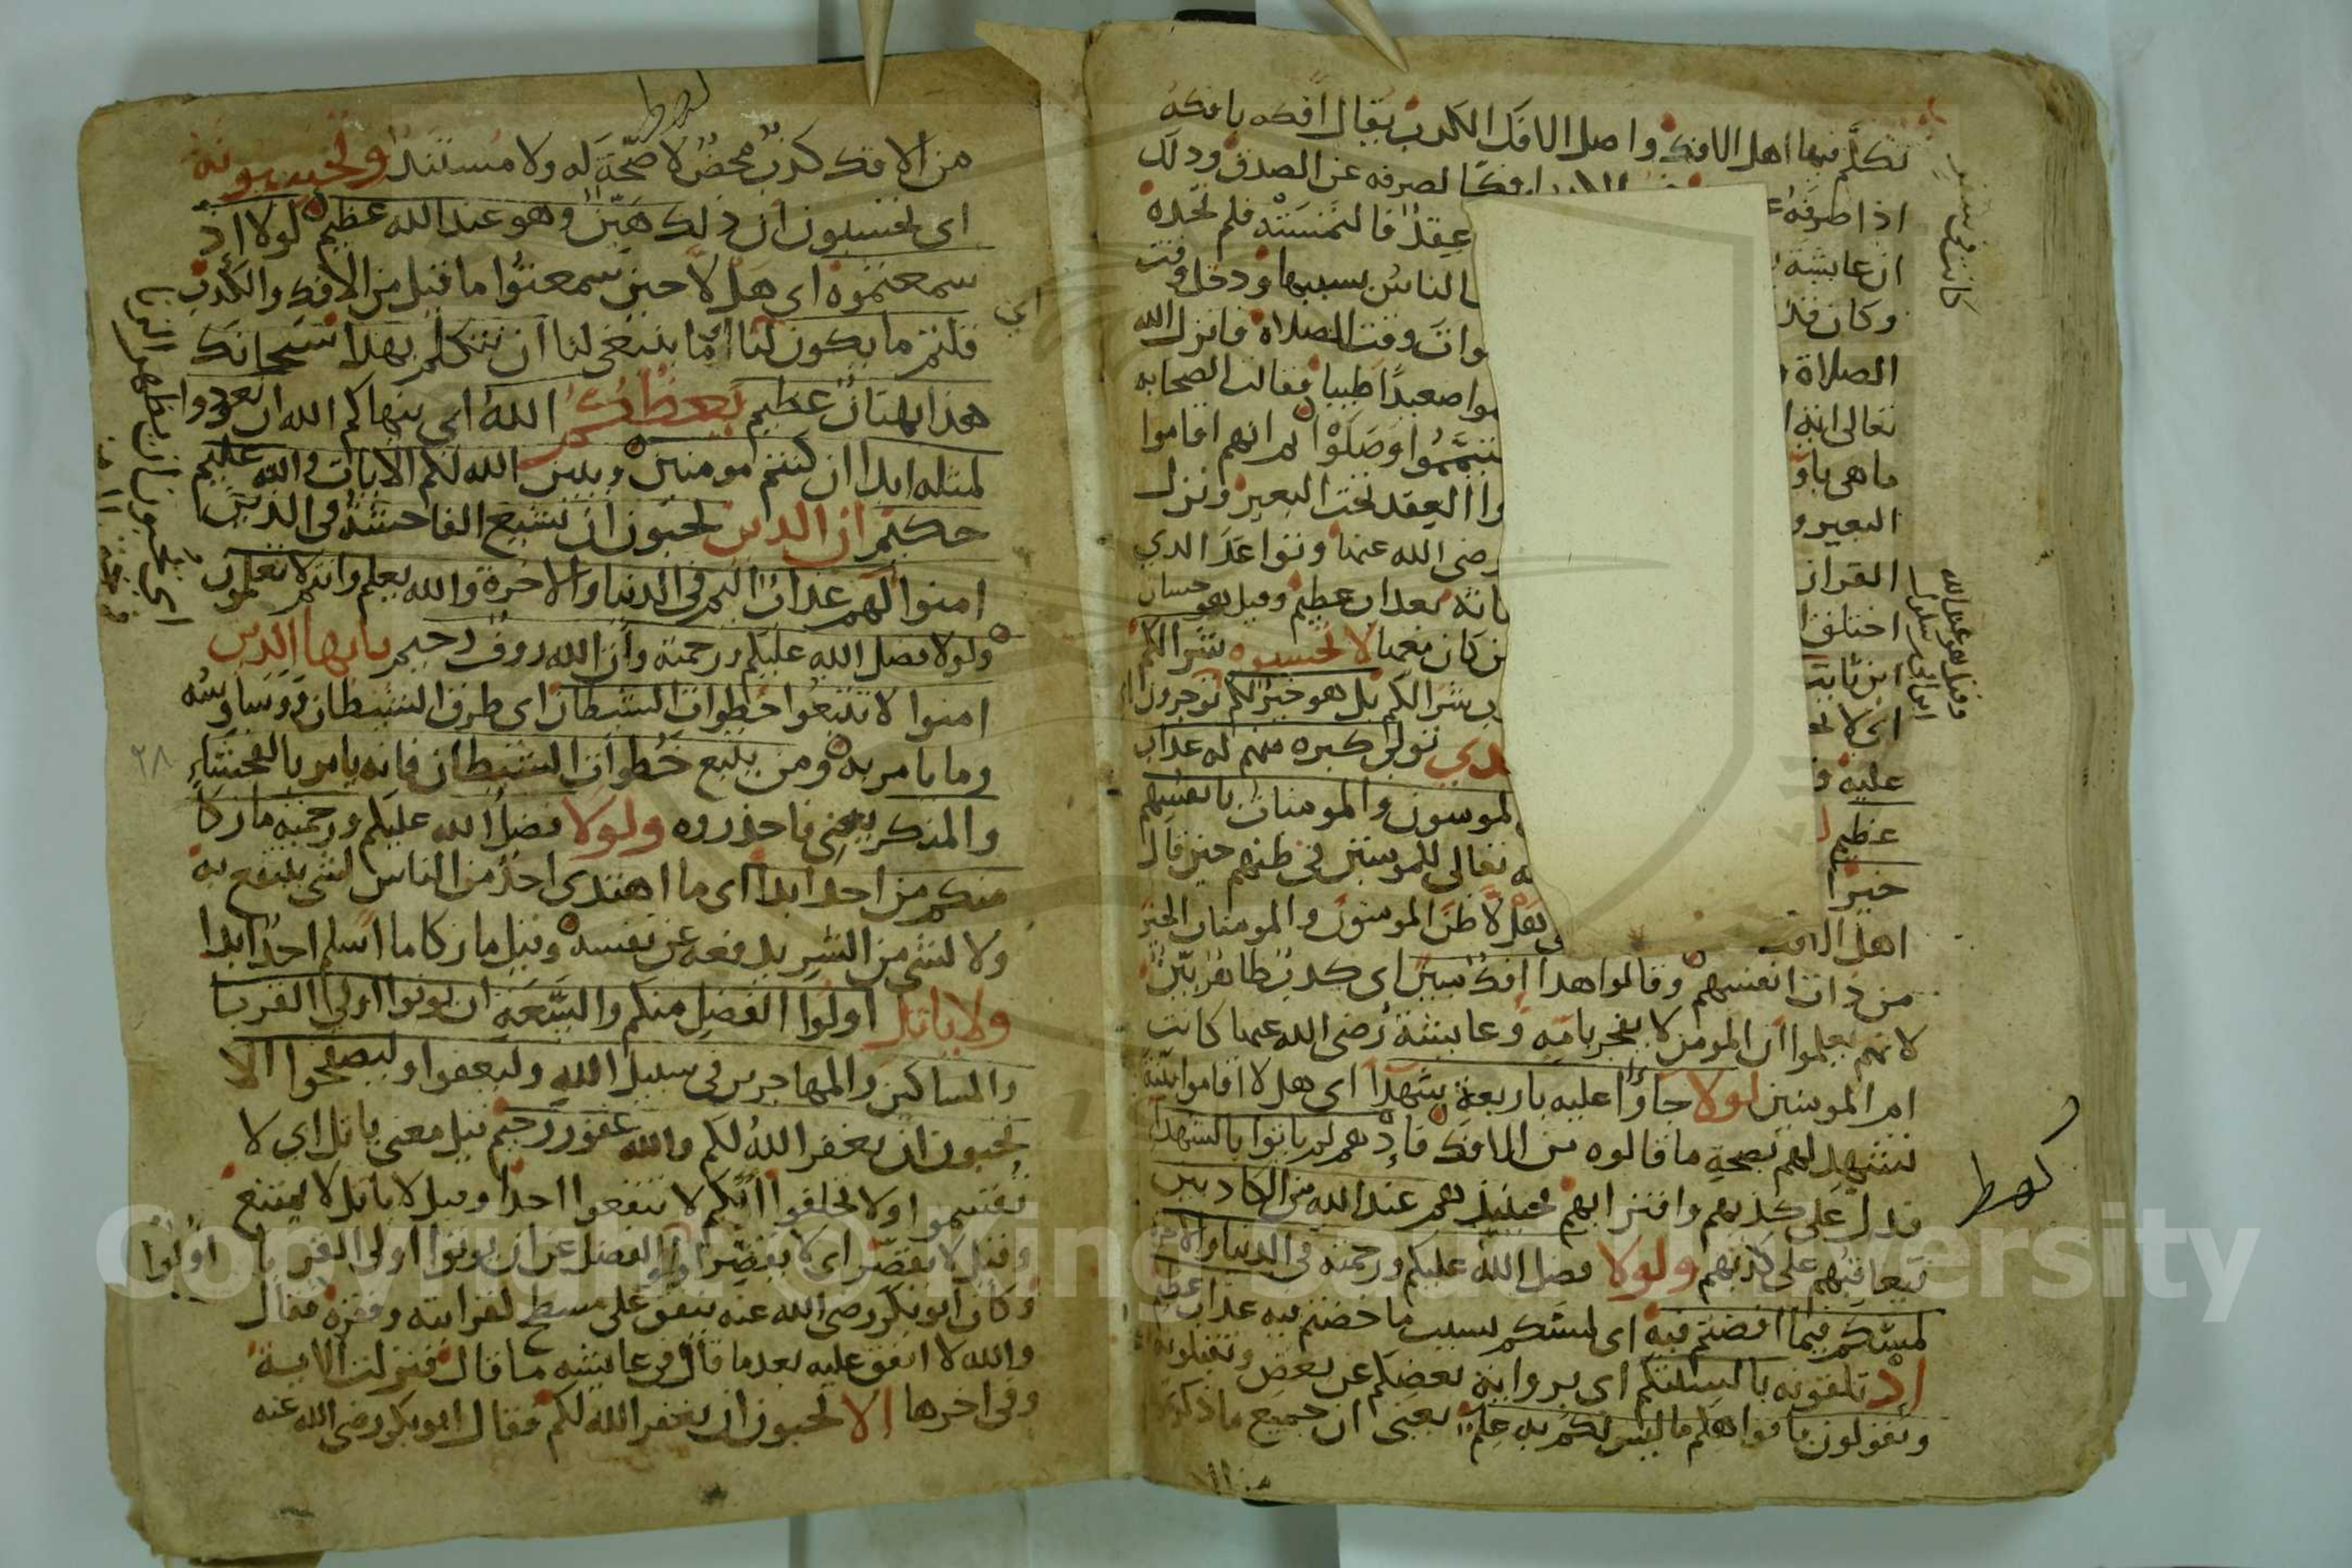 تكلم فيها اهل الافك واصل الافك الكذب يقال افكه يافكه
اذا صرفه لصرفه عن الصدق وذلك
ان عايشة عقد فالتمسته فلم تجده
وكان قد الناس بسببها ودخل وقت
الصلاة وات وقت الصلاة فانزل الله
تعالى اية صعيدا طيبا فقالت الصحابه
ما هي باو وصلوا ثم انهم اقاموا
البعير و العقد تحت البعير ونزل
القران رضي الله عنها وتواعد الذي
اختلق بعذاب عظيم وقيل هو حسان
ابن ثابت كان نعما لا تحسبوه شرا لكم
اي لا شرا لكم بل هو خير لكم توجرون
عليه تولى كبره منهم له عذاب
عظيم المومنون والمومنات بانفسهم
خيرا تعالى للمومنين في ظنهم حين قال
اهل الافك هلا ظن المومنون والمومنات الخير
من ذات انفسهم وقالوا هذا افك مبين اي كذب ظاهر بين
لانهم يعلموا ان المومن لا يفجر بامه وعايشة رضي الله عنها كانت
ام المومنين لولا جاؤا عليه باربعة شهدا اي هلا اقاموا بينة
تشهد لهم بصحة ما قالوه من الافك فاذ هم لم ياتوا بالشهدا
فدل على كذبهم وافترايهم فحينيذ هم عند الله من الكاذبين
فيعاقبهم على كذبهم ولولا فضل الله عليكم ورحمته في الدنيا والاخرة
لمسكم فيما افضتم فيه اي لمسكم بسبب ما خضتم فيه عذاب عظيم
اذ تلقونه بالسنتكم اي بروايه بعضكم عن بعض وتقبلونه
وتقولون بافواهكم ما ليس لكم به علم يعني ان جميع ما ذكرتم
من الا
وقيل هو عبد الله
ابن ابي سلول
من الافك كذب محض لا صحة له ولا مستند وتحسبونه
اي تحسبون ان ذلك هين وهو عند الله عظيم لولا اذ
سمعتموه اي هلا حين سمعتوا ما قيل من الافك والكذب
قلتم ما يكون لنا اي ما ينبغي لنا ان نتكلم بهذا سبحانك
هذا بهتان عظيم يعظكم الله اي ينهاكم الله ان تعودوا
لمثله ابدا ان كنتم مومنين ويبين الله لكم الايات والله عليم
حكيم ان الذين يحبون ان تشيع الفاحشة في الذين
امنوا لهم عذاب اليم في الدنيا والاخرة والله يعلم وانتم لا تعلمون
ولولا فضل الله عليكم ورحمته وان الله روف رحيم يايها الذين
امنوا لا تتبعوا خطوات الشيطان اي طرق الشيطان ووساوسه
وما يامر به ومن يتبع خطوات الشيطان فانه يامر بالفحشاء
٢٨
والمنكر يعني فاحذروه ولولا فضل الله عليكم ورحمته ما زكا
منكم من احد ابدا اي ما اهتدى احد من الناس لشي ينتفع به
ولا لشي من الشر يدفعه عن نفسه وقيل ما زكا ما اسلم احد ابدا
ولا ياتل اولوا الفضل منكم والسعة ان يوتوا اولي القربا
والمساكين والمهاجرين في سبيل الله وليعفوا وليصفحوا الا
تحبون ان يغفر الله لكم والله غفور رحيم قيل معنى ياتل اي لا
تقسموا ولا تحلفوا انكم لا تنفعوا احدا وقيل لا ياتل لا يمتنع
وقيل لا يقصر اي لا يقصر اولوا الفضل عن ان يوتوا اولي القربا
اولوا
وكان ابو بكر رضي الله عنه ينفق على مسطح لقرابته وفقره فقال
والله لا انفق عليه بعد ما قال في عايشه ما قال فنزلت الاية
وفي اخرها الا تحبون ان يغفر الله لكم فقال ابو بكر رضي الله عنه
Copyright © King Saud University